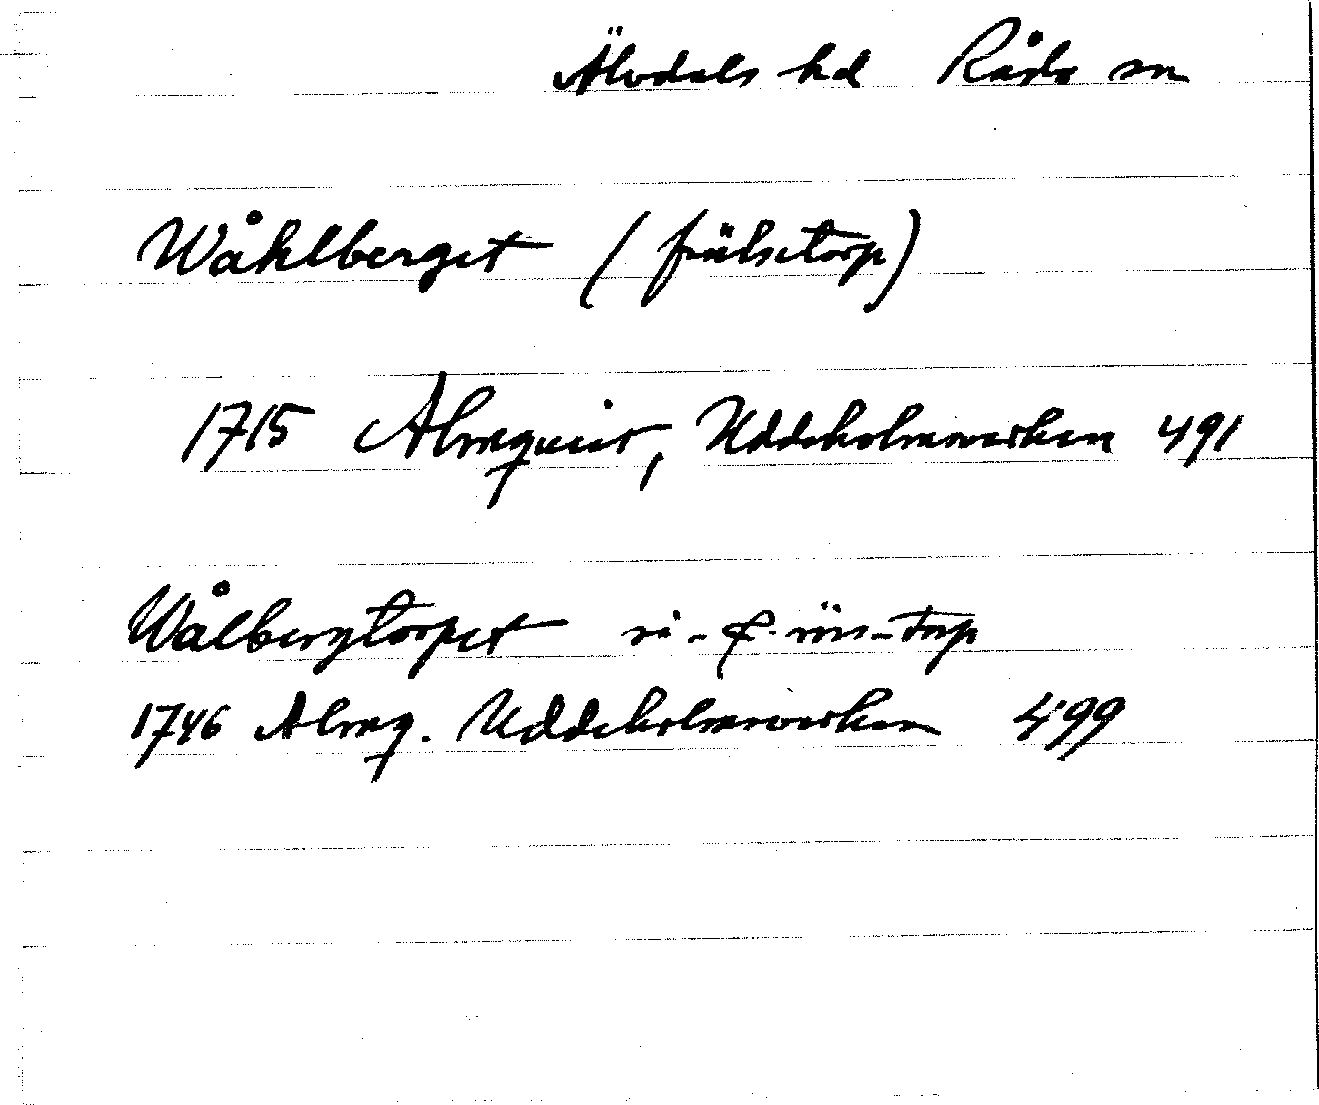 Älvdals hd Råda sn
Wåhlberget (frälsetorp)
1715 Almquist, Uddeholmsverken 491
Wålbergtorpet
1746 Almq. Uddeholmsverken 499